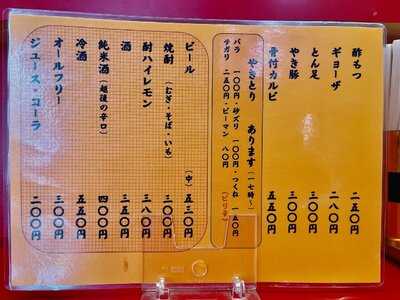 酢もつ 二五〇円
ギョーザ 二八〇円
とん足 三〇〇円
やき豚 三〇〇円
骨付カルビ 五五〇円
やきとり あります(一七時〜)
バラ 一〇〇円・砂ズリ 一〇〇円・つくね 一五〇円
テガリ 二五〇円・ピーマン 八〇円 (ピリ辛)
ビール (中) 五三〇円
焼酎(むぎ・そば・いも) 三〇〇円
酎ハイレモン 三八〇円
酒 三五〇円
純米酒(越後の辛口) 四〇〇円
冷酒 五五〇円
オールフリー 三〇〇円
ジュース・コーラ 二〇〇円